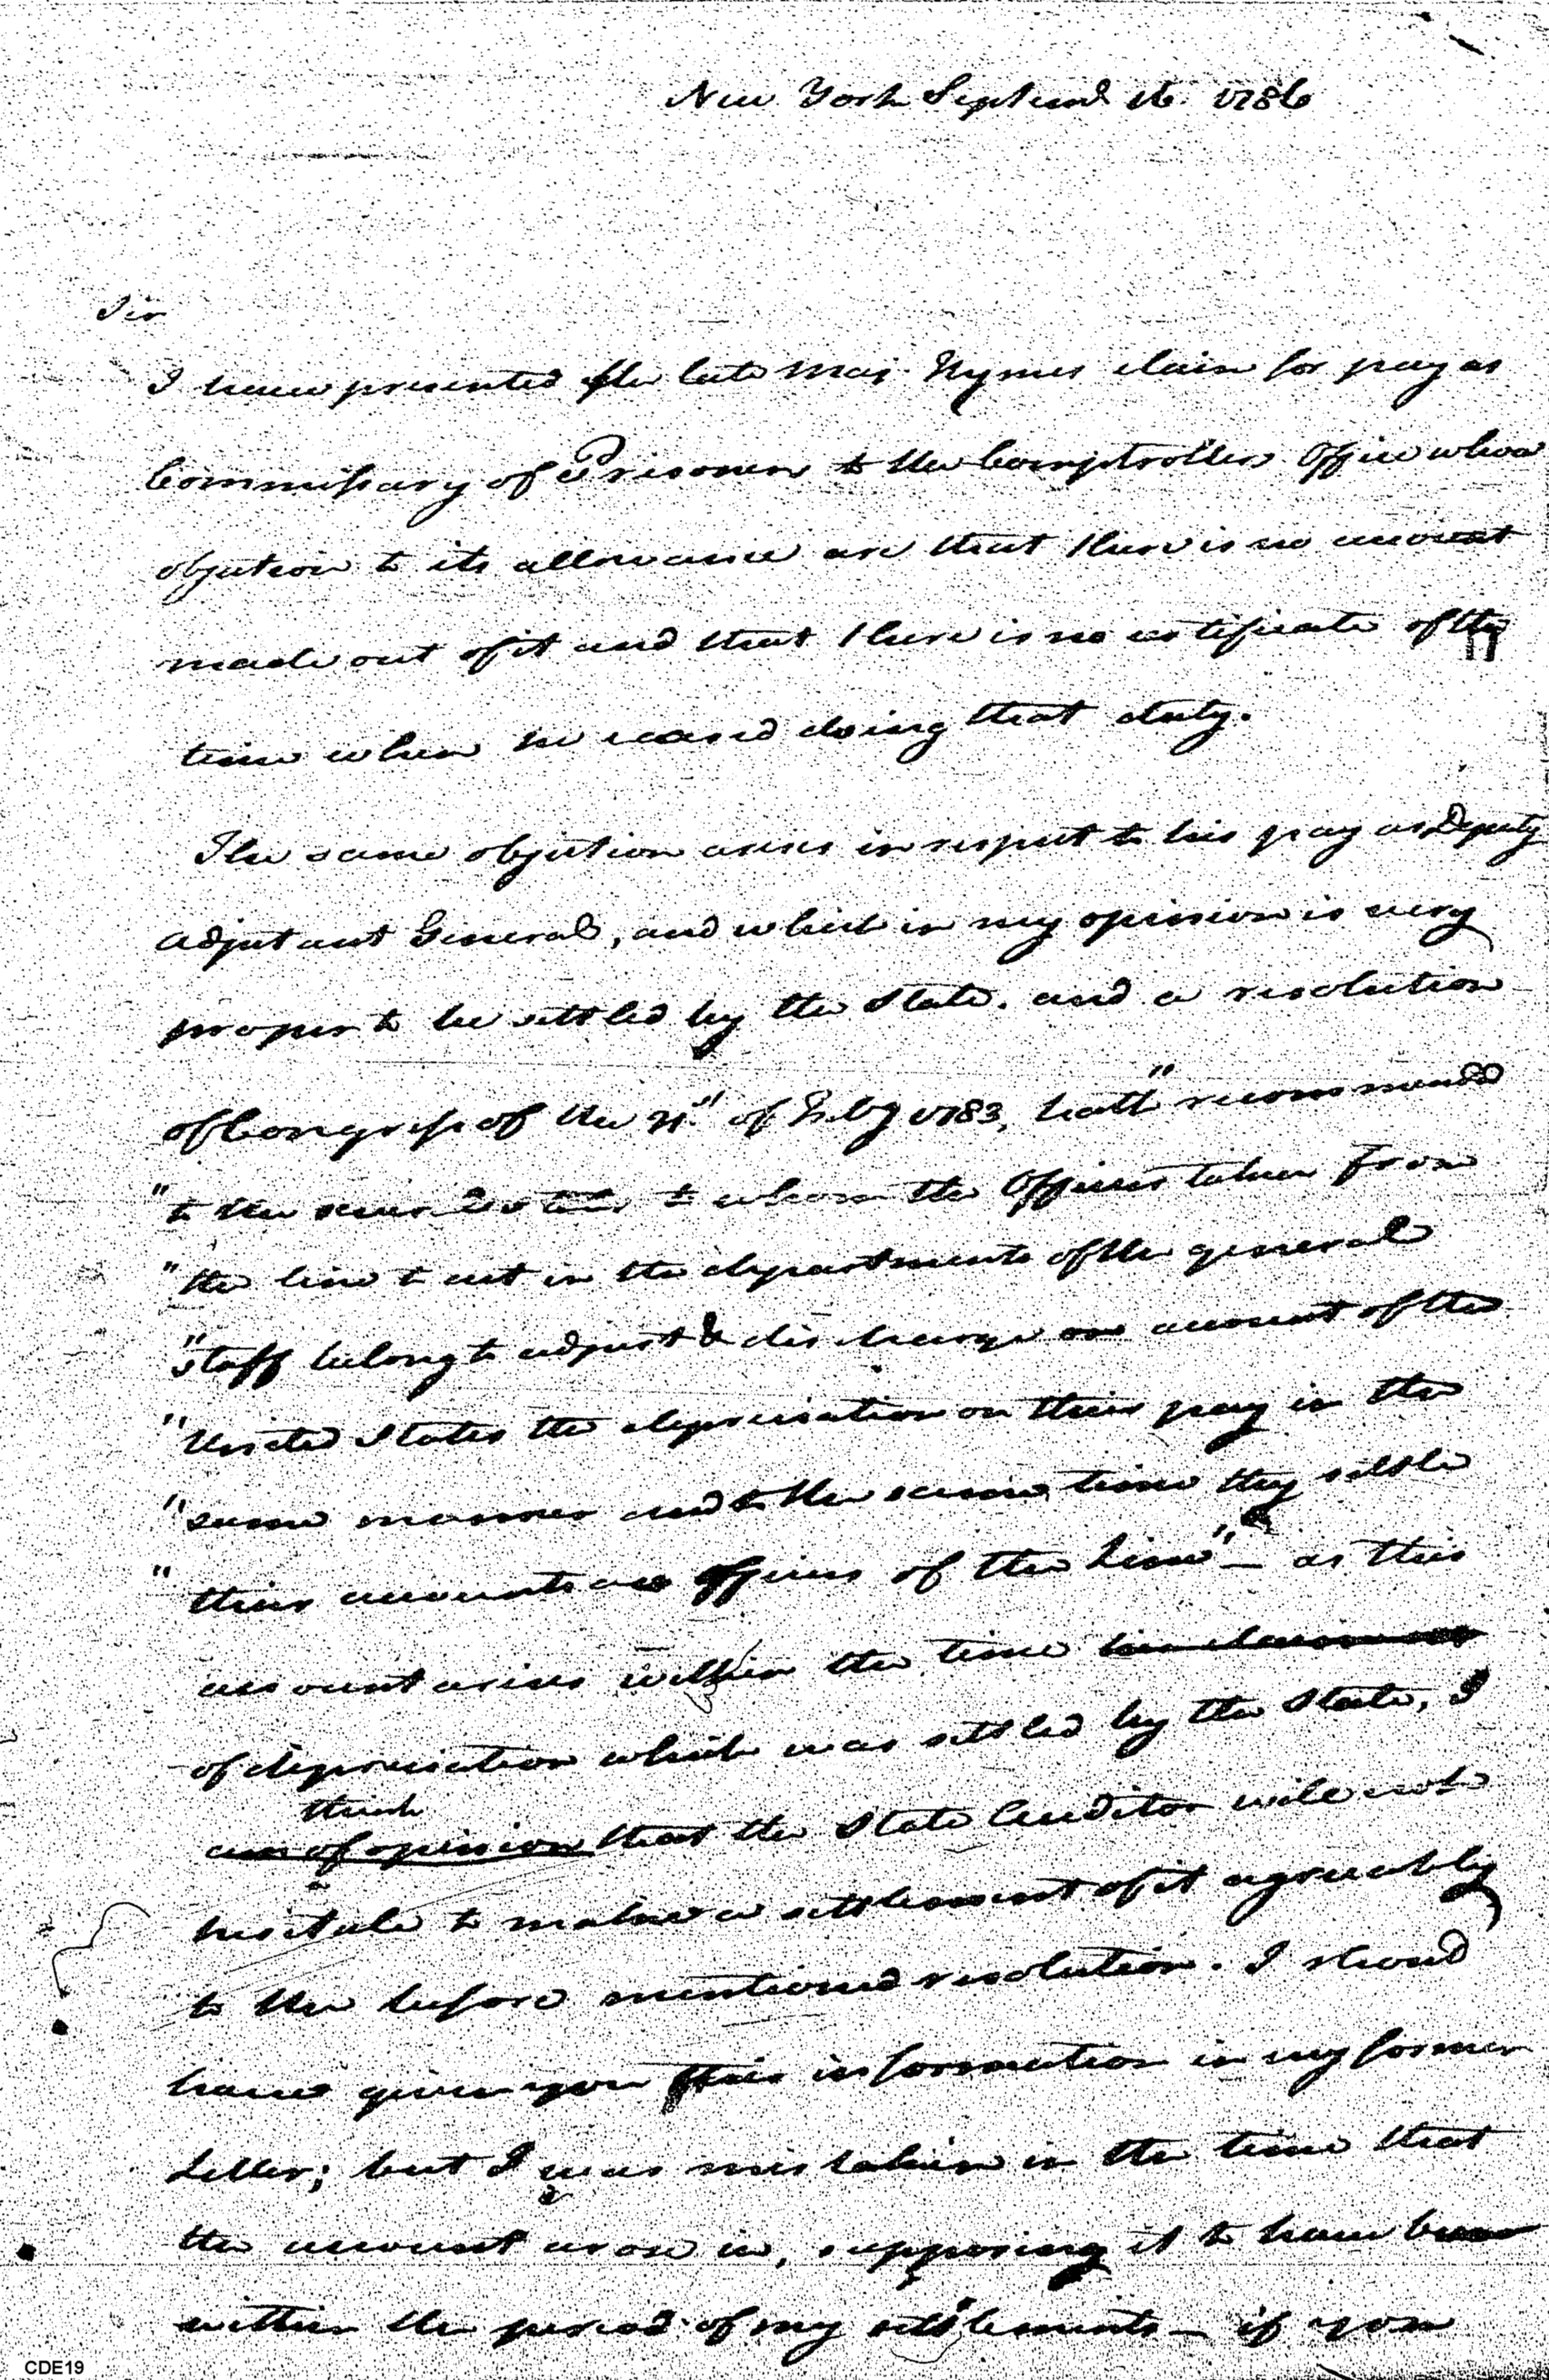 New York Septemb 16. 1786
Sir
I have presented the late Maj. Hyrnes claim for pay as
Commissary of Prisoners to the Comptrollers Office whose
objection to its allowance are that there is no account
made out of it and that there is no certificate of the
time when he ceased doing that duty.
The same objection arises in respect to his pay as Deputy
Adjutant General, and which in my opinion is very
proper to be settled by the State. and a resolution
of Congress of the of Feby 1783, hath "recommended
"to the several States to whom the Officers taken from
"the line to act in the departments of the general
"staff belong to adjust & discharge on account of the
"United States the depreciation on their pay in the
"same manner and to the same time they settle
"their accounts as officers of the Line" — as this
account arises within the time
of depreciation which was settled by the State, I
think
am of opinion that the State Auditor will not
hesitate to make a settlement of it agreeably
to the before mentioned resolution. I should
have given you this information in my former
Letter; but I was mistaken in the time that
the account arose in, supposing it to have been
within the period of my settlements — if you
CDE19